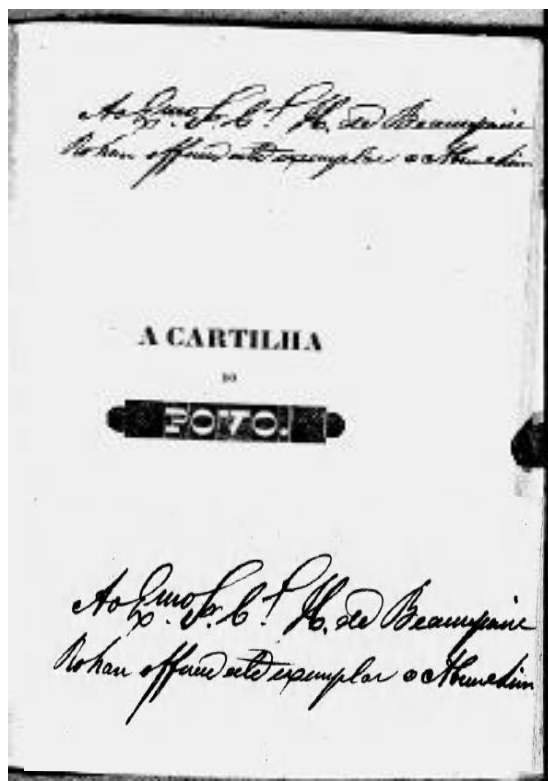 Ao Exmo Sr. C.l H. de Beaurepaire
Rohan offerece este exemplar o
A CARTILHA
DO
POVO.
Ao Exmo Sr. C.l H. de Beaurepaire
Rohan offerece este exemplar o